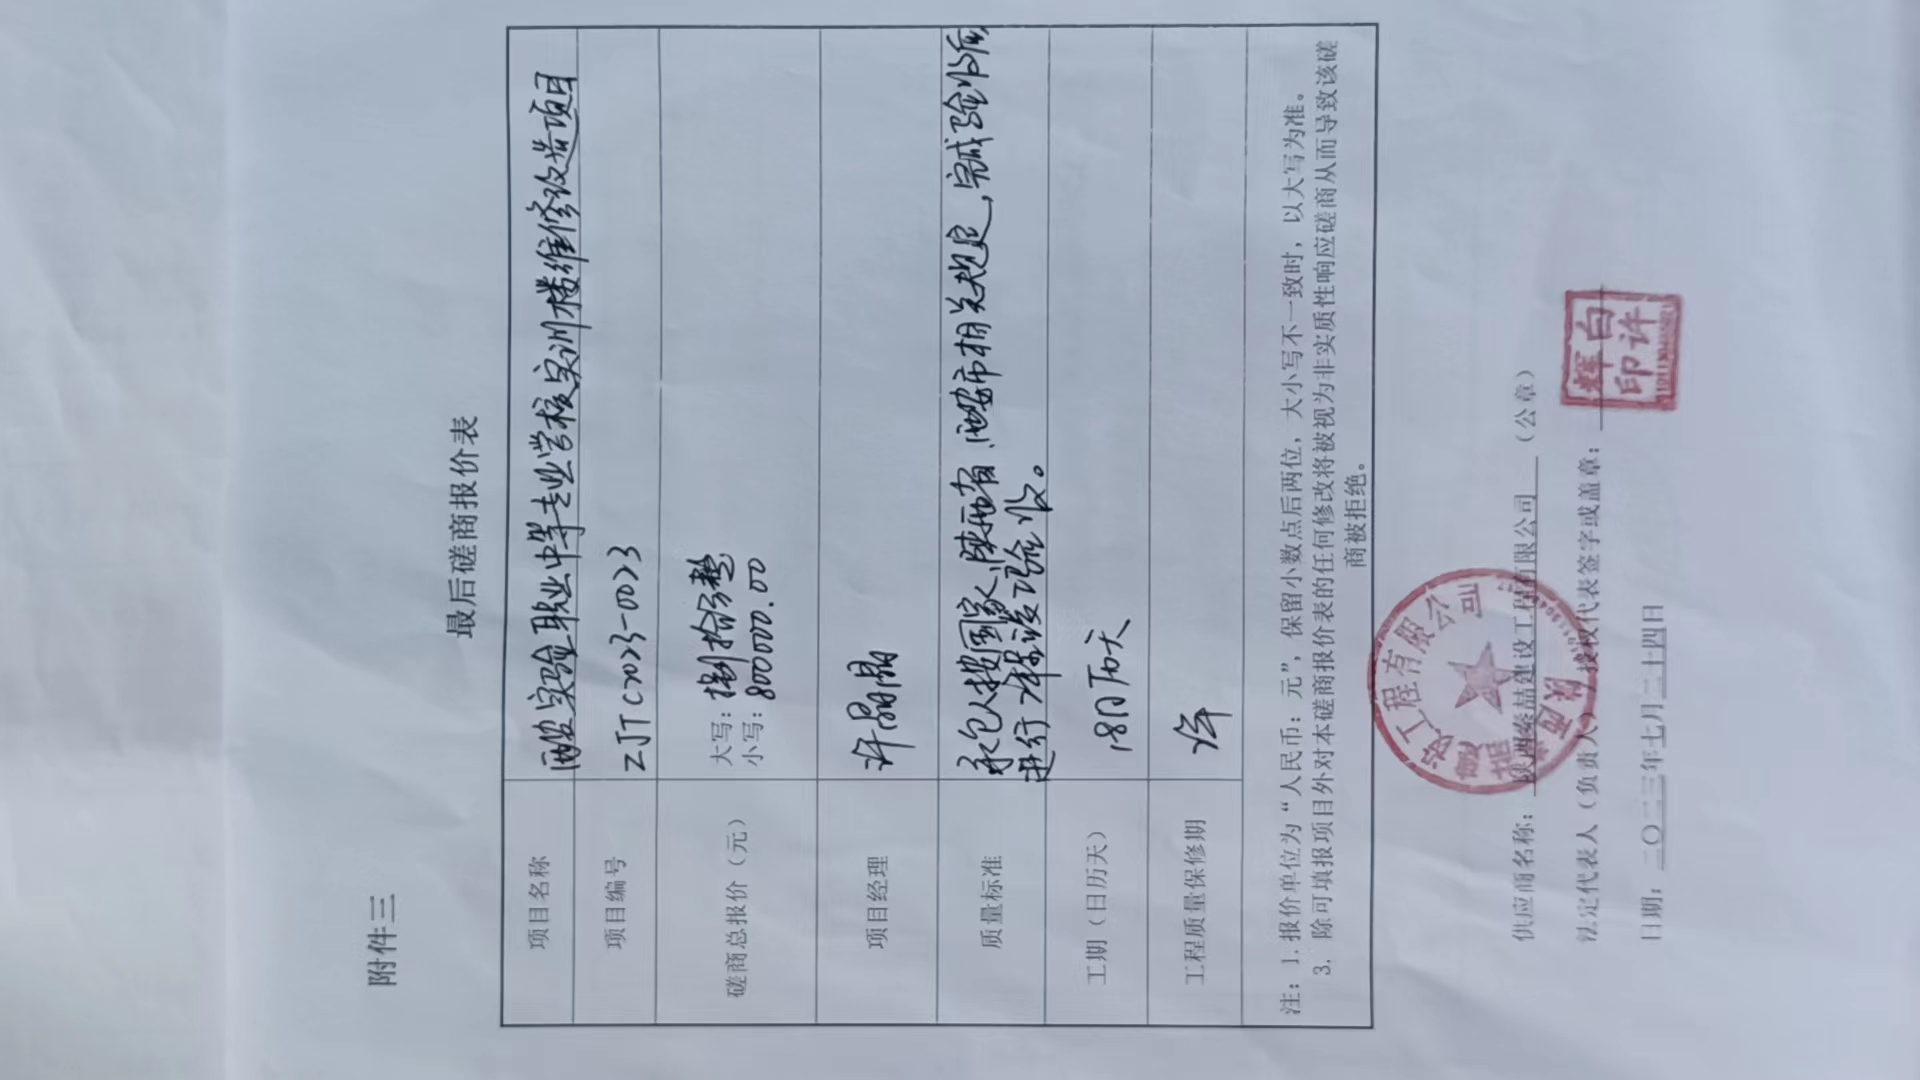 附件三
最后磋商报价表
项目名称 西安实验职业中等专业学校实训楼维修改造项目
项目编号 ZJTC2023-0023
磋商总报价（元） 大写：捌拾万整
小写：800000.00
项目经理 许晶晶
质量标准 承包人按国家、陕西省、西安市相关规定，完成验收后
进行工程竣工验收。
工期（日历天） 18日历天
工程质量保修期 1年
注：1.报价单位为“人民币：元”，保留小数点后两位，大小写不一致时，以大写为准。
3. 除可填报项目外对本磋商报价表的任何修改将被视为非实质性响应磋商从而导致该磋
商被拒绝。
供应商名称：陕西秦喆建设工程有限公司（公章）
法定代表人（负责人）/授权代表签字或盖章：
白许
辉印
日期：二〇二三年七月二十四日